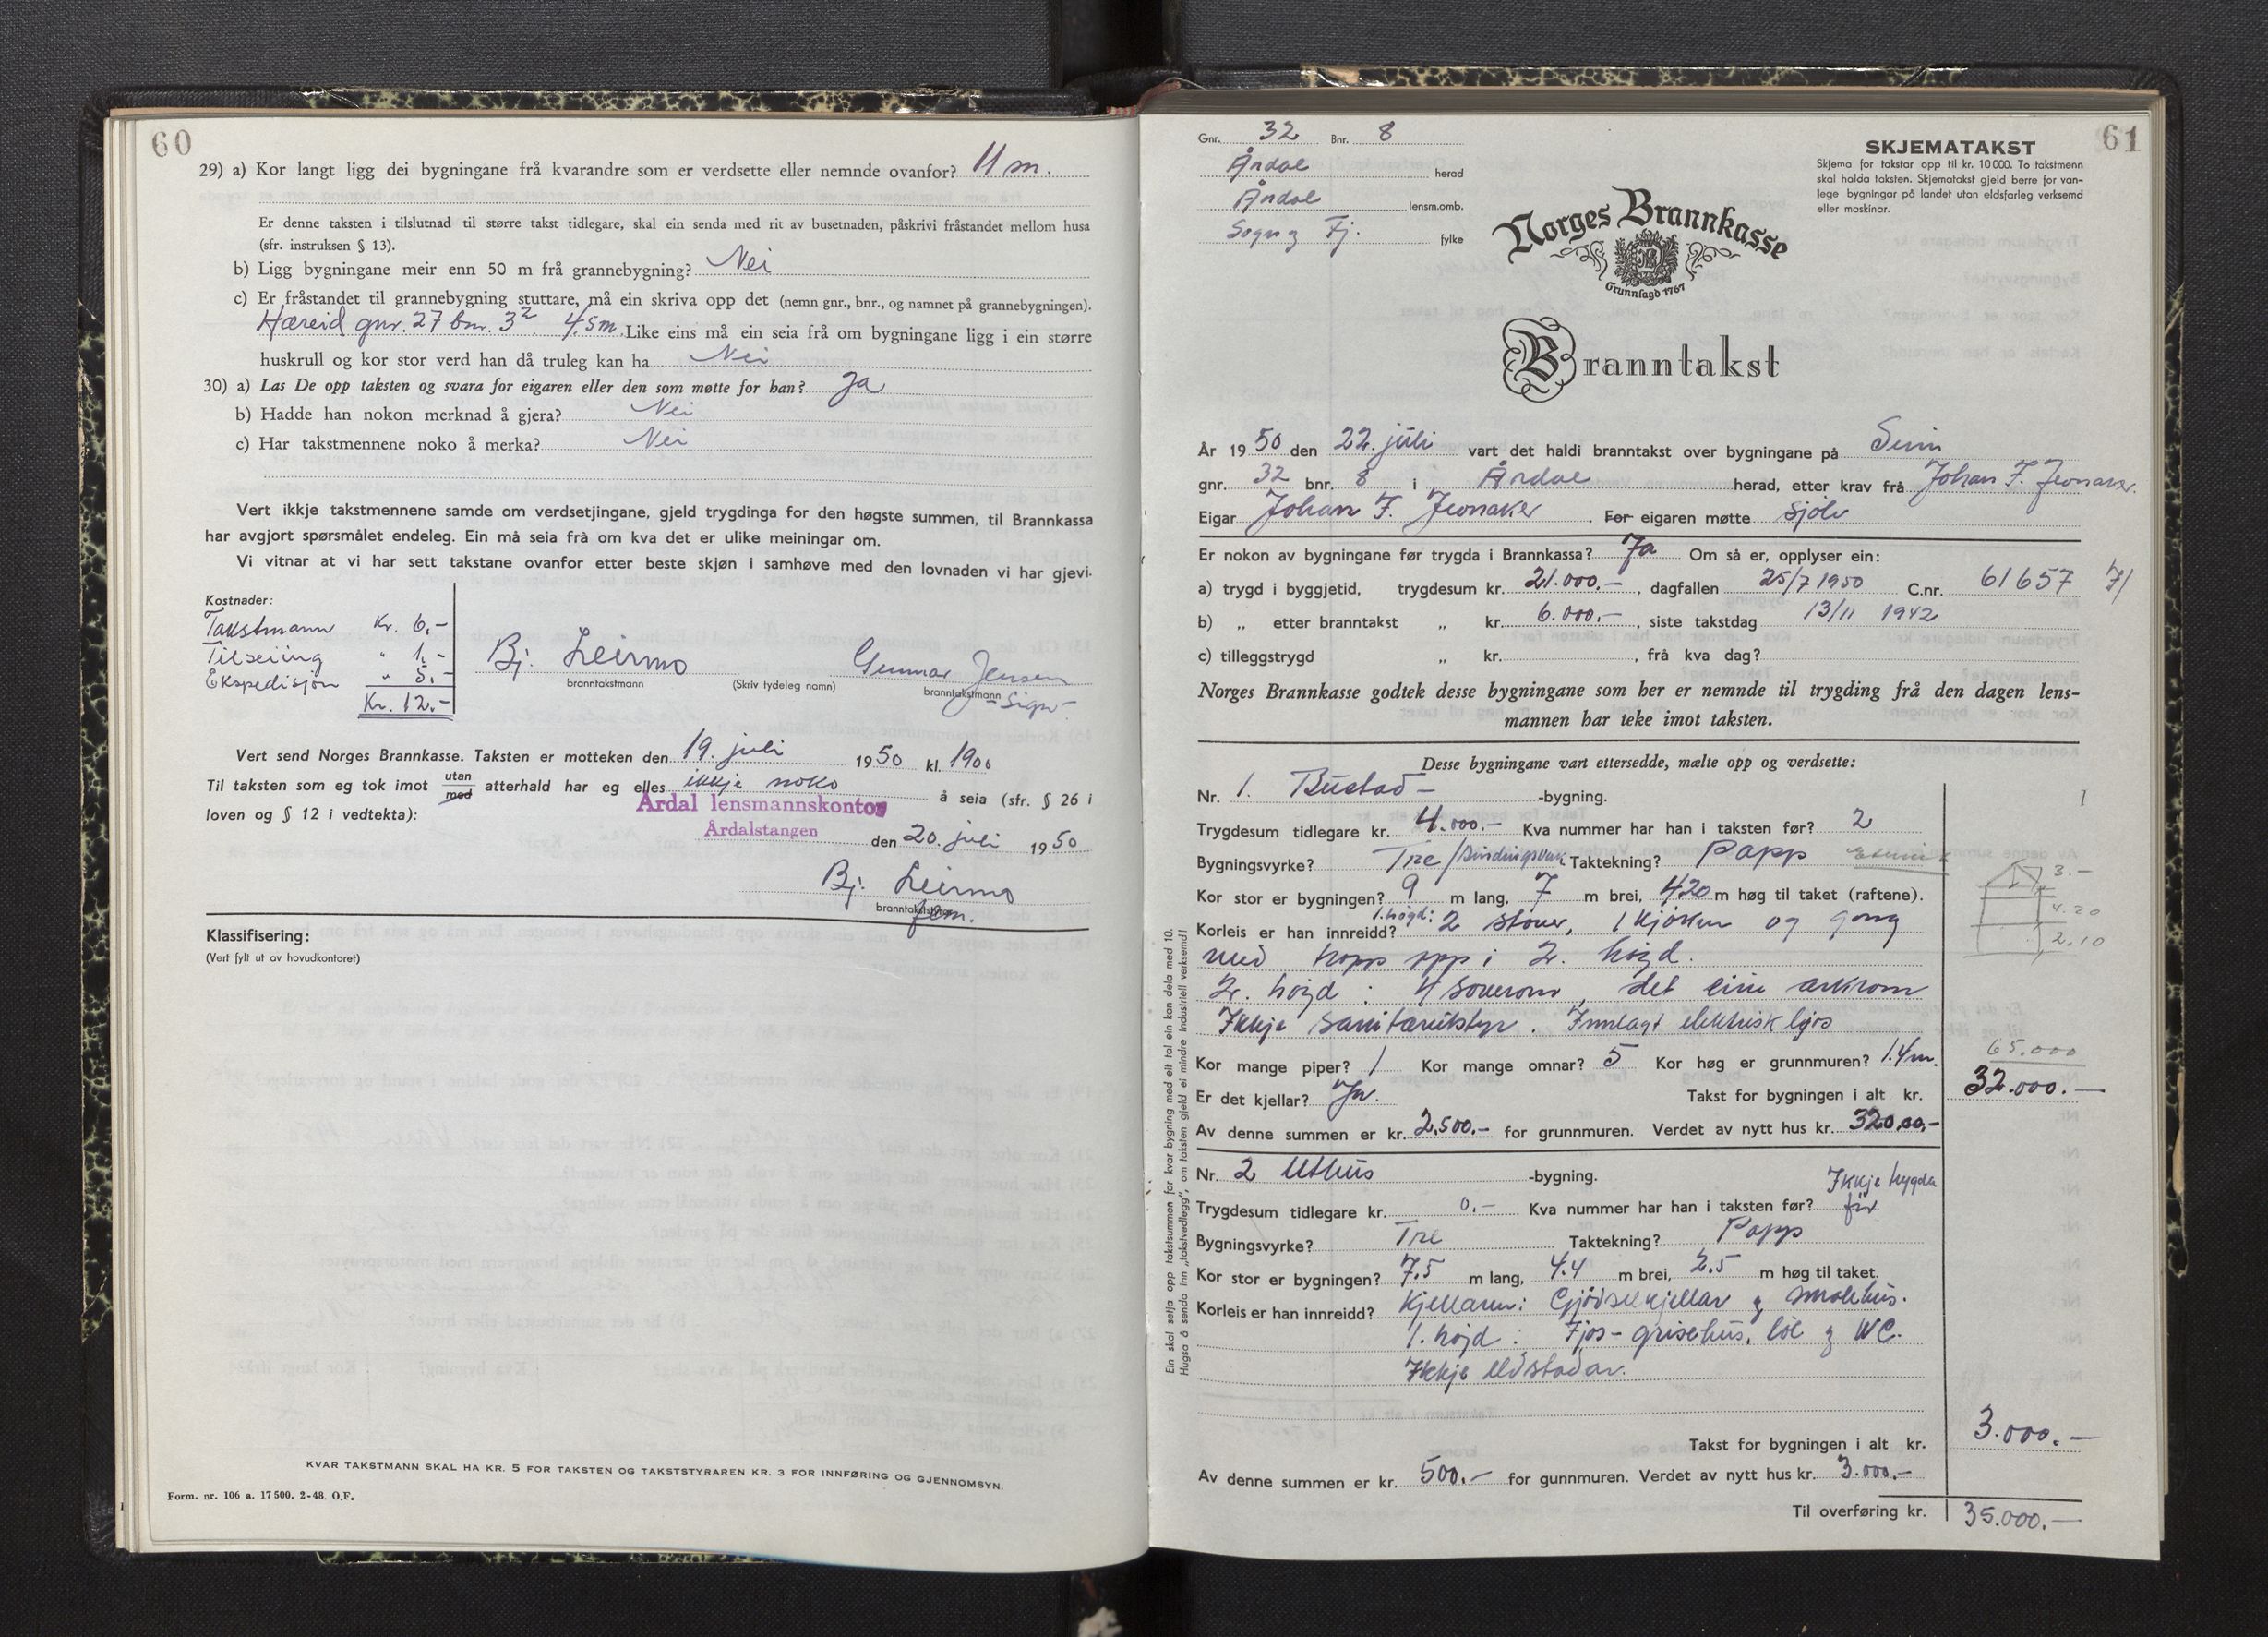 60
29) a) Kor langt ligg dei bygningane frå kvarandre som er verdsette eller nemnde ovanfor? 11 m.
Er denne taksten i tilslutnad til større takst tidlegare, skal ein senda med rit av busetnaden, påskrivi fråstandet mellom husa
(sfr. instruksen § 13).
b) Ligg bygningane meir enn 50 m frå grannebygning? Nei
c) Er fråstandet til grannebygning stuttare, må ein skriva opp det (nemn gnr., bnr., og namnet på grannebygningen).
Hæreid gnr. 27 bnr. 32. 4,5m. Like eins må ein seia frå om bygningane ligg i ein større
huskrull og kor stor verd han då truleg kan ha Nei
30) a) Las De opp taksten og svara for eigaren eller den som møtte for han? Ja
b) Hadde han nokon merknad å gjera? Nei
c) Har takstmennene noko å merka? Nei
Vert ikkje takstmennene samde om verdsetjingane, gjeld trygdinga for den høgste summen, til Brannkassa
har avgjort spørsmålet endeleg. Ein må seia frå om kva det er ulike meiningar om.
Vi vitnar at vi har sett takstane ovanfor etter beste skjøn i samhøve med den lovnaden vi har gjevi.
Kostnader:
Takstmann Kr. 6,-
Tilseiing " 1,-
Ekspedisjon " 5,-
Kr. 12.-
Bj. Leirmo
Gunnar Jensen
branntakstmann (Skriv tydeleg namn) branntakstmann
Sign.
Vert send Norges Brannkasse. Taksten er motteken den 19. juli 1950 kl. 1900
Til taksten som eg tok imot utan med atterhald har eg elles ikkje noko å seia (sfr. § 26 i
loven og § 12 i vedtekta):
Årdal lensmannskontor
Årdalstangen
den 20. juli 1950
Bj. Leirmo
Klassifisering:
(Vert fylt ut av hovudkontoret)
KVAR TAKSTMANN SKAL HA KR. 5 FOR TAKSTEN OG TAKSTSTYRAREN KR. 3 FOR INNFØRING OG GJENNOMSYN.
Form. nr. 106 a. 17 500. 2-48. O.F.
61
Gnr. 32 Bnr. 8
Årdal herad
Årdal lensm.omb.
Sogn og Fj. fylke
SKJEMATAKST
Skjema for takstar opp til kr. 10 000. To takstmenn
skal halda taksten. Skjematakst gjeld berre for van-
lege bygningar på landet utan eldsfarleg verksemd
eller maskinar.
Norges Brannkasse
Grunnlagd 1767
Branntakst
År 1950 den 22. juli vart det haldi branntakst over bygningane på
gnr. 32 bnr. 8 i Årdal herad, etter krav frå Johan F. Jevnaker.
Eigar Johan F. Jevnaker. For eigaren møtte sjølv
Er nokon av bygningane før trygda i Brannkassa? Ja Om så er, opplyser ein:
a) trygd i byggjetid, trygdesum kr. 21.000.-, dagfallen 25/7 1950 C.nr. 61657 71
b) „ etter branntakst „ kr. 6.000.-, siste takstdag 13/11 1942
c) tilleggstrygd „ kr. , frå kva dag?
Norges Brannkasse godtek desse bygningane som her er nemnde til trygding frå den dagen lens-
mannen har teke imot taksten.
Desse bygningane vart ettersedde, mælte opp og verdsette:
Nr. 1. Bustad- -bygning. 1
Trygdesum tidlegare kr. 4.000.- Kva nummer har han i taksten før? 2
Bygningsvyrke? Tre/bindingsverk Taktekning? Papp Eternit
Kor stor er bygningen? 9 m lang, 7 m brei, 4,20 m høg til taket (raftene).
Korleis er han innreidd? 1. høgd: 2 stover, 1 kjøkken og gang
med tropp opp i 2. høgd.
2. høgd: 4 soverom, det eine arkrom
Ikkje sanitærutstyr. Innlagt elektrisk ljos
3.-
4.20
2.10
Kor mange piper? 1 Kor mange omnar? 5 Kor høg er grunnmuren? 1.4m.
65.000
Er det kjellar? Ja. Takst for bygningen i alt kr. 32.000.-
Av denne summen er kr. 2.500.- for grunnmuren. Verdet av nytt hus kr. 32000,-
Nr. 2 Uthus -bygning.
Trygdesum tidlegare kr. 0.- Kva nummer har han i taksten før? Ikkje trygda før
Bygningsvyrke? Tre Taktekning? Papp
Kor stor er bygningen? 7.5 m lang, 4.4 m brei, 2.5 m høg til taket.
Korleis er han innreidd? Kjellaren: Gjødselkjellar og smalehus.
1. høgd: Fjos- grisehus, løe og WC.
Ikkje eldstadar.
Takst for bygningen i alt kr. 3.000.-
Av denne summen er kr. 500.- for gunnmuren. Verdet av nytt hus kr. 3.000.-
Til overføring kr. 35.000.-
Ein skal setja opp takstsummen for kvar bygning med eit tal ein kan dela med 10.
Hugsa å senda inn „takstvedlegg", om taksten gjeld ei mindre industriell verksemd!